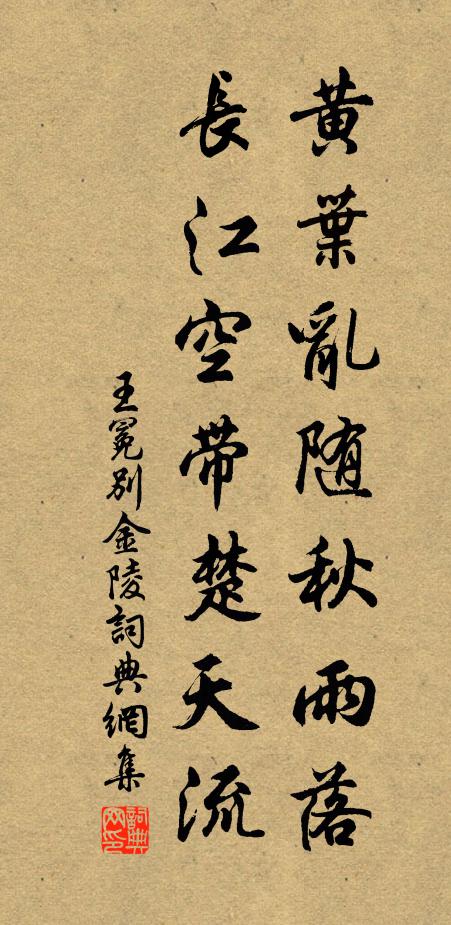 黃葉亂随秋雨落
長江空帶楚天流
王冕别金陵詞典網集
詞典网印